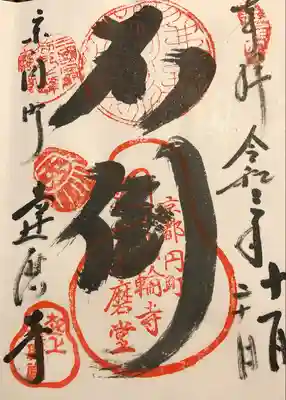 奉拝 令和三年
十一月
二十日
不倒
京都円町
輪寺
磨堂
京円町 達磨寺